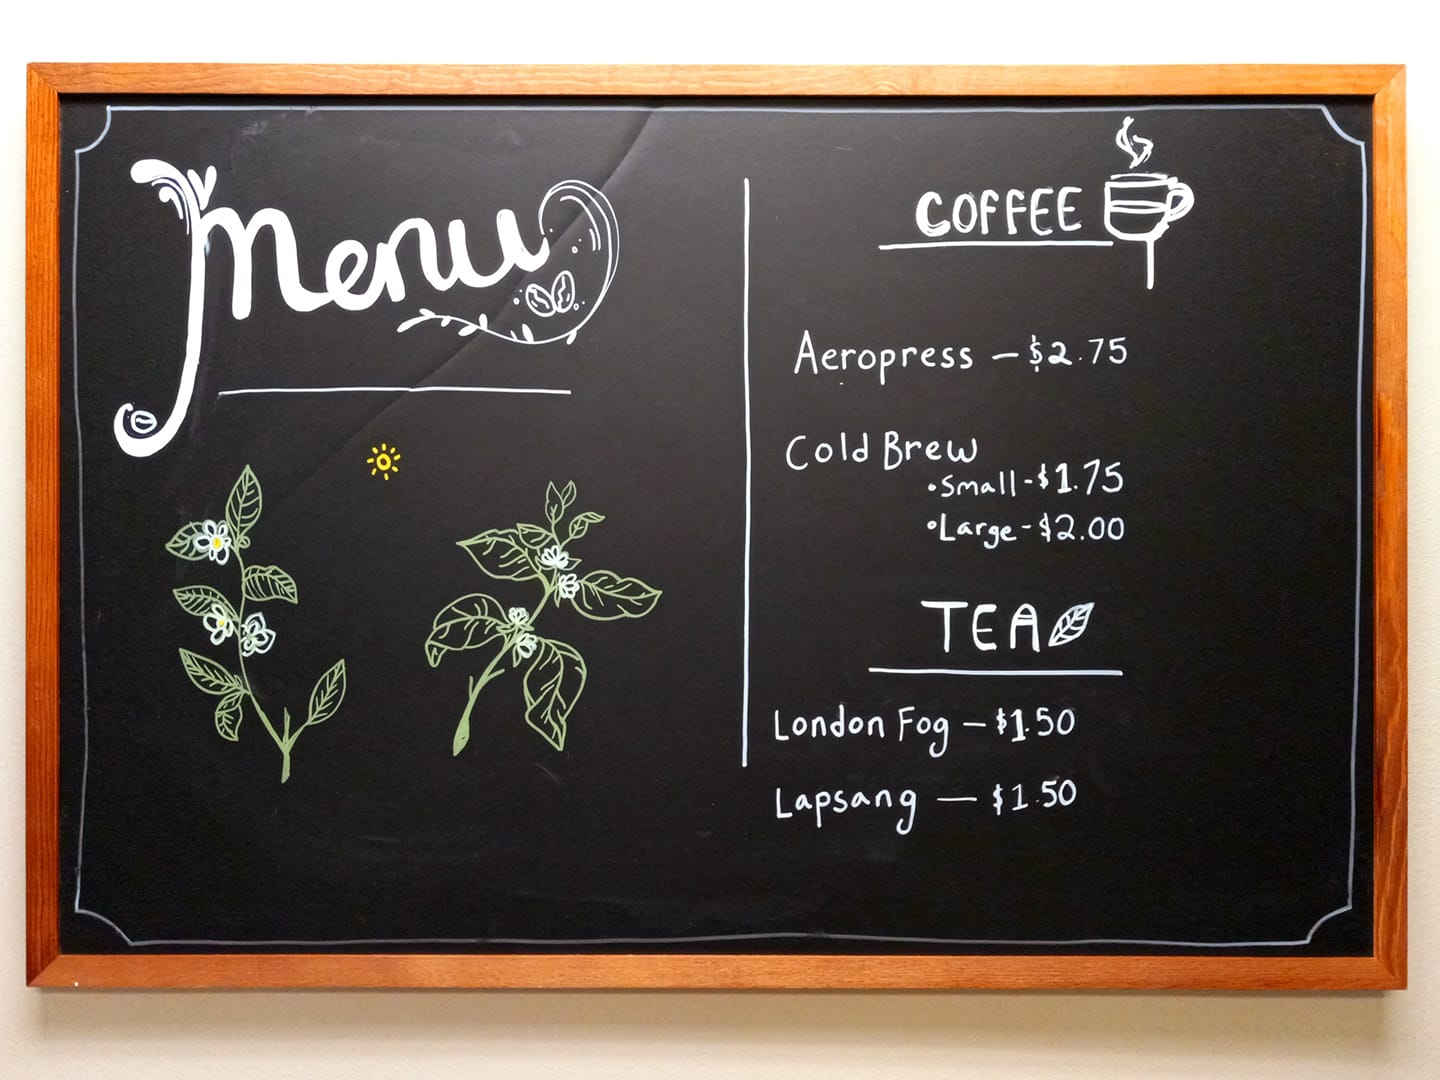 Menu
COFFEE
Aeropress — $2.75
Cold Brew
• Small - $1.75
• Large - $2.00
TEA
London Fog — $1.50
Lapsang — $1.50